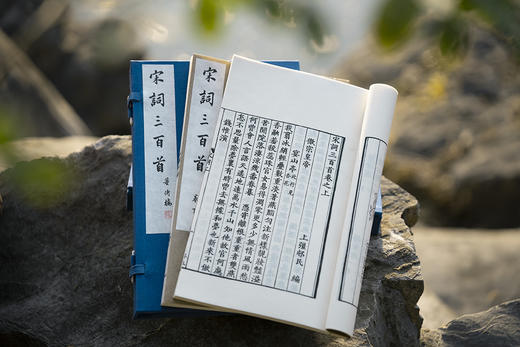 宋詞三百首
宋詞三百首
宋詞三百首卷之上
上彊邨民 編
徽宗皇帝
宴山亭
裁翦冰綃輕疊數重淡著燕脂勻注新樣靚妝豔溢
香融羞殺蕊珠宮女易得凋零更多少無情風雨愁
苦閒院落淒涼幾番春暮 憑寄離恨重重者雙燕
何曾會人言語天遙地遠萬水千山知他故宮何處
怎不思量除夢裏有時曾去無據和夢也新來不做
錢惟演